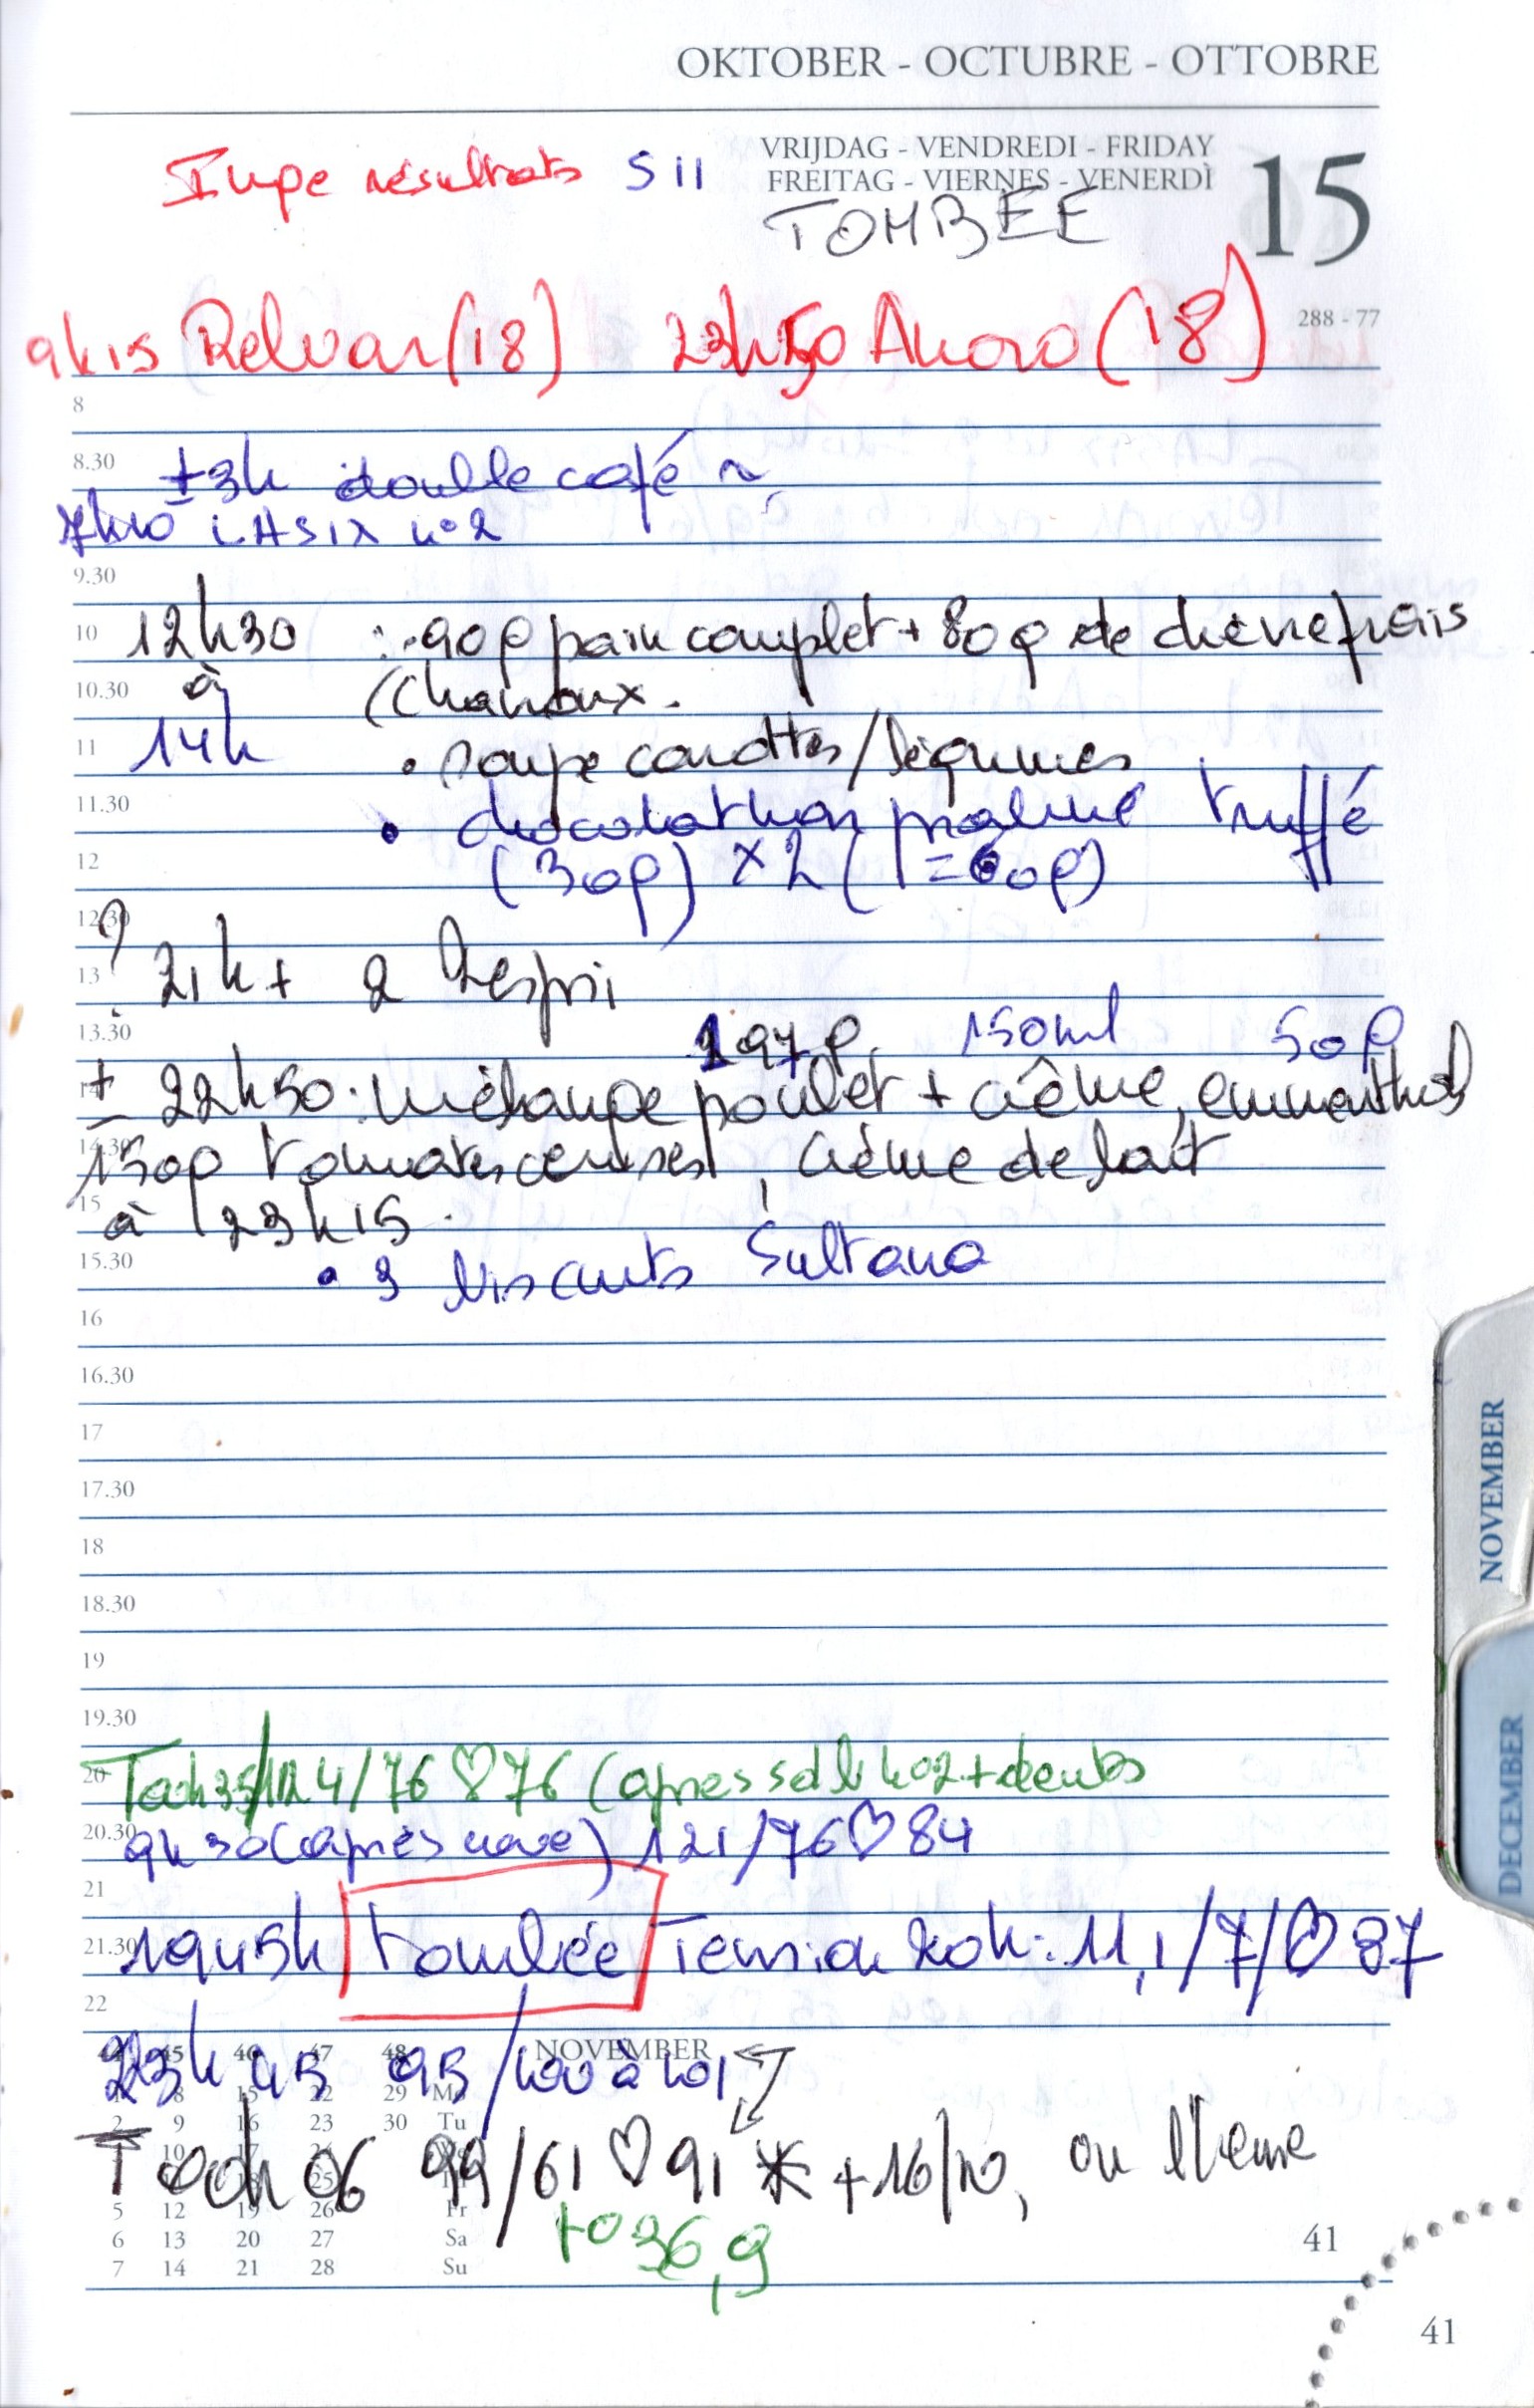 OKTOBER - OCTUBRE - OTTOBRE
VRIJDAG - VENDREDI - FRIDAY
FREITAG - VIERNES - VENERDÌ
15
résultats S11
TOMBÉE
288 - 77
9h15 Relvar (18) 23h50 Anoro (18)
8
8.30 ±3h double café
7h40 LASIX n°2
9.30
10 12h30 : 90g pain complet + 80g de chèvre frais
10.30 à (Chavroux.
11 14h • soupe carottes/légumes
11.30 • chocolat praliné truffé
12 (30g) x 2 (1=60g)
12.30 ?
13 21h +
13.30 197g 150ml 50g
14 ± 22h50 : mélange poulet + crème, emmenthal
14.30 150g tomates cerises, crème de lait
15 à 23h15.
15.30 • 3 biscuits Sultana
16
16.30
17
17.30
18
18.30
19
19.30
20 /76 ♡ 76 (après
20.30 9h30 (après 121/76 ♡ 84
21
21.30 tombée Tension 20h : 11,1/7/♡ 87
22
23h 95
NOVEMBER
45 46 47 48
1 8 15 22 29 Mo
2 9 16 23 30 Tu
10 17
25
5 12 19 26 Fr
6 13 20 27 Sa
7 14 21 28 Su
99/61 ♡ 91 * +
t° 36,9
41
41
NOVEMBER
DECEMBER